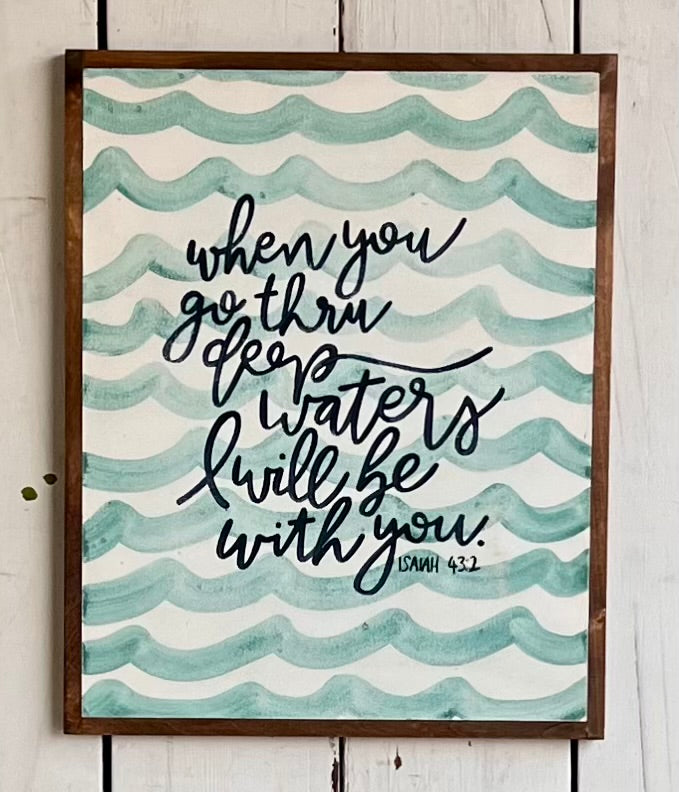 when you
go thru
deep
waters
I will be
with you.
ISAIAH 43:2